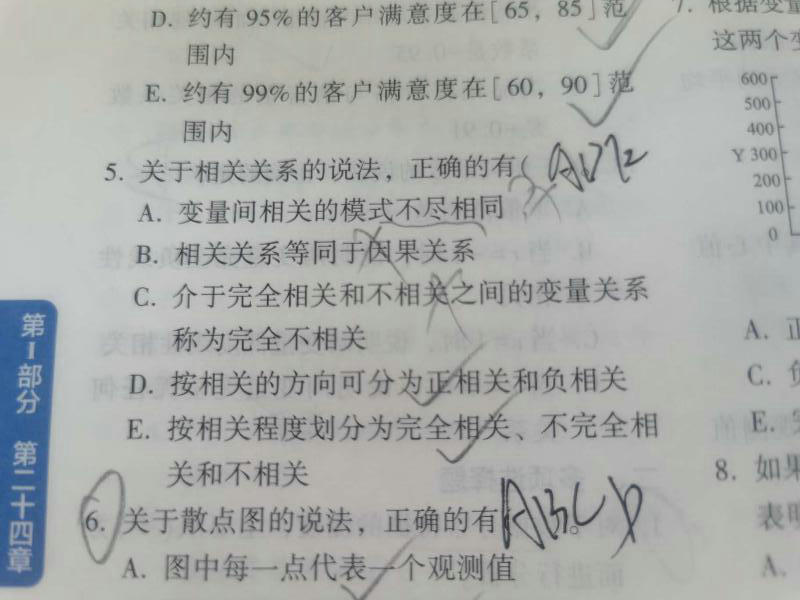 D. 约有 95%的客户满意度在[65，85]范
围内
E. 约有 99%的客户满意度在[60，90]范
围内
5. 关于相关关系的说法，正确的有( ADE
A. 变量间相关的模式不尽相同
B. 相关关系等同于因果关系
C. 介于完全相关和不相关之间的变量关系
称为完全不相关
D. 按相关的方向可分为正相关和负相关
E. 按相关程度划分为完全相关、不完全相
关和不相关
6. 关于散点图的说法，正确的有 ABCD 。
A. 图中每一点代表一个观测值
第Ⅰ部分 第二十四章
7. 根据变量
这两个变
600
500
400
Y 300
200
100
0
A. 正
C. 负
E.
8. 如果
表明
A.